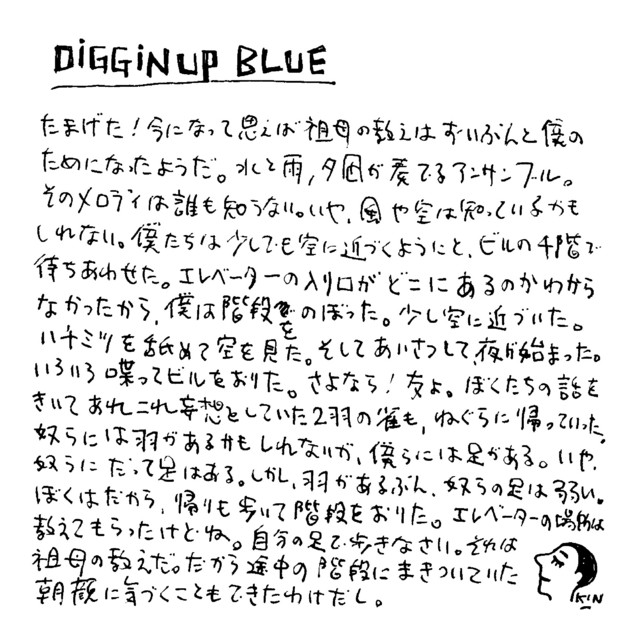 DiGGiNUP BLUE
たまげた！今になって思えば祖母の教えはずいぶんと僕の
ためになったようだ。水と雨，夕凪が奏でるアンサンブル。
そのメロディは誰も知らない。いや，風や空は知っているかも
しれない。僕たちは少しでも空に近づくようにと，ビルの4階で
待ちあわせた。エレベーターの入り口がどこにあるのかわから
なかったから，僕は階段をのぼった。少し空に近づいた。
ハチミツを舐めて空を見た。そしてあいさつして，夜が始まった。
いろいろ喋ってビルをおりた。さよなら！友よ。ぼくたちの話を
きいてあれこれ妄想としていた2羽の雀も，ねぐらに帰っていった。
奴らには羽があるかもしれないが，僕らには足がある。いや，
奴らにだって足はある。しかし，羽があるぶん，奴らの足は弱い。
ぼくはだから，帰りも歩いて階段をおりた。エレベーターの場所は
教えてもらったけどね。自分の足で歩きなさい。それは
祖母の教えだ。だから途中の階段にまきついていた
朝顔に気づくこともできたわけだし。
KiN